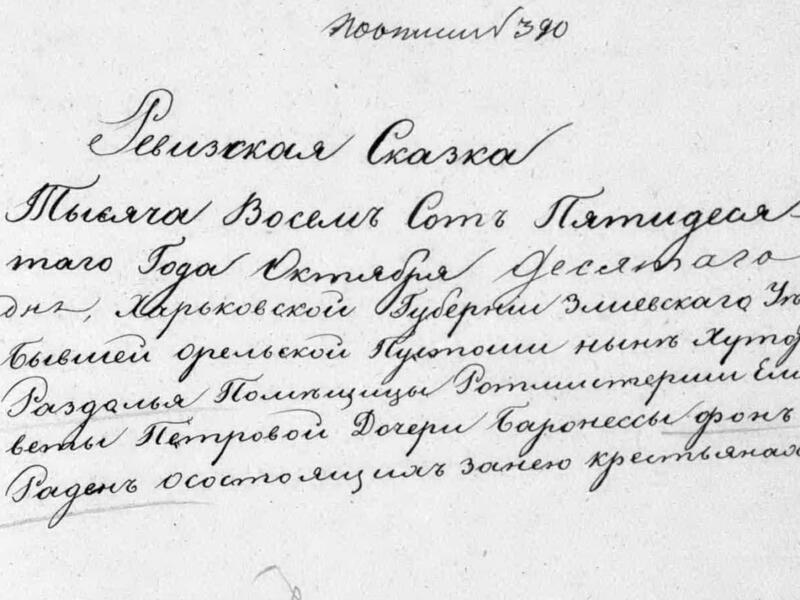 По описи 390
Ревизская Сказка
Тысяча Восемъ Сотъ Пятидеся-
таго Года Октября Десятаго
дня, Харьковской Губернии Змиевскаго Уѣ
бывшей Орельской Пустоши нынѣ Хутор
Раздолья Помѣщицы Ротмистерши Ели
веты Петровой Дочери Баронессы фонъ
Раденъ осостоящихъ занею крестьянах